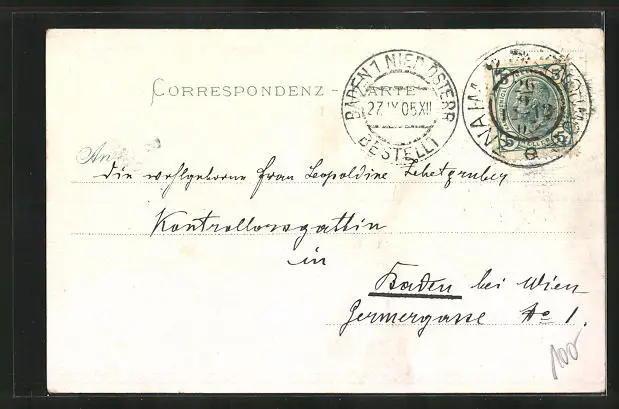 CORRESPONDENZ-KARTE
BADEN 1 NIED. ÖSTERR.
27.IX.05.XII
BESTELLT
ZNAIM
5 5
An
die wohlgeborne Frau Leopoldine
Kontrollorsgattin
in
Baden bei Wien
Germergasse No 1.
100